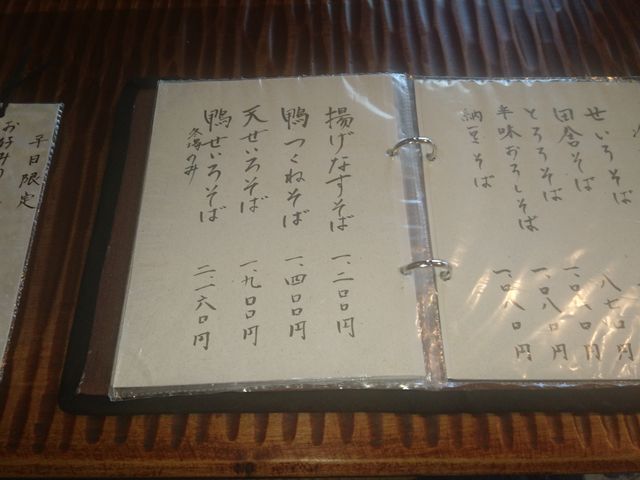 せいろそば 八七〇円
田舎そば
とろろそば 一、〇八〇円
辛味おろしそば 一、〇八〇円
納豆そば
揚げなすそば 一、二〇〇円
鴨つくねそば 一、四〇〇円
天せいろそば 一、九〇〇円
鴨せいろそば 二、一六〇円
冬場のみ
平日限定
お好みの